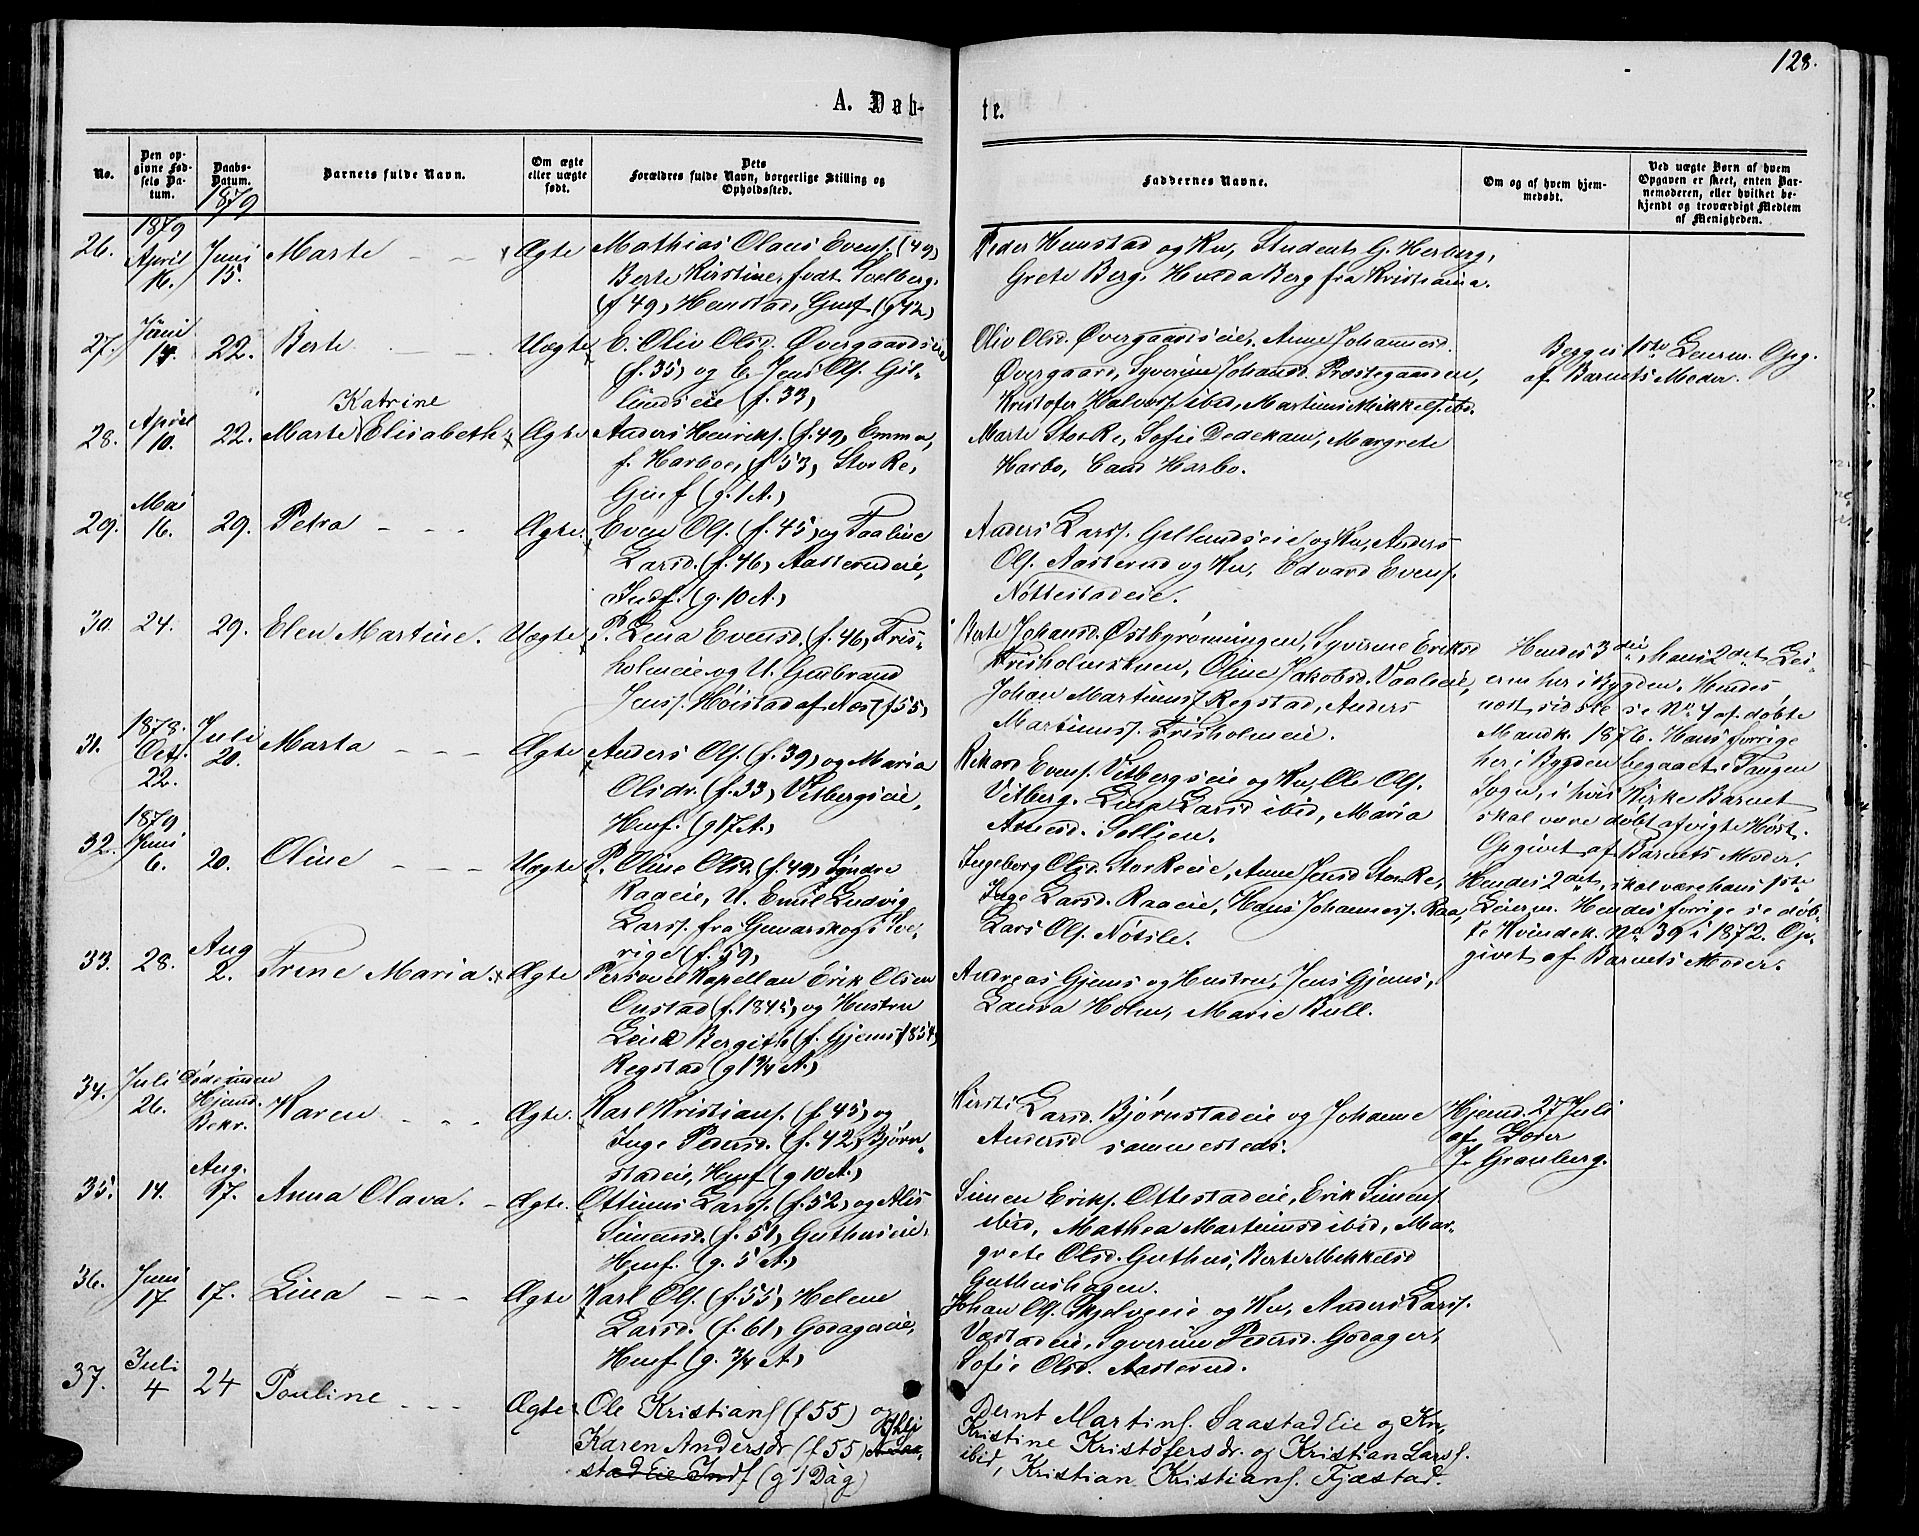 128.
A. Døb-
te.
No.
Den op-
givne Fød-
sels Da-
tum.
Daabs-
Datum.
1879
Barnets fulde Navn.
Om ægte
eller uægte
født.
Dets
Forældres fulde Navn, borgerlige Stilling og
Opholdssted.
Faddernes Navne.
Om og af hvem hjem-
medøbt.
Ved uægte Børn af hvem
Opgaven er skeet, enten Bar-
nemoderen, eller hvilket be-
kjendt og troværdigt Medlem
af Menigheden.
1879
26. April 16. Juni 15. Marte - - Ægte
Mathias Olaus Evens. (49)
Berte Kirstine, født Soelberg
(f 49) Hemstad, Gmf (g 12)
Peder Hemstad og Kv, Student G. Herberg,
Grete Berg, Hulda Berg fra Kristiania.
27. Juni 14. 22. Berte - - Uægte
E. Oliv Olsd. Øvergaardseie
(f. 35) og E. Jens Ols. Gil-
lundseie (f. 33)
Oliv Olsd. Øvergaardseie, Anne Johannesd.
Øvergaard, Syverine Johansd. Præstegaarden,
Kristofer Halvors. ibid, Martinus Mikkels. ibid.
Begges 1ste Leierm. Opg.
af Barnets Moder.
28. April 10. 22. Marte Katrine Elisabeth Ægte
Anders Henriks. (f. 49) Emma,
f. Harboe, (f 53) StorRe,
Gmf (g. 1 A.)
Marte StorRe, Sofie Dedekam, Margrete
Harbo, Cand Harbo.
29. Mai 16. 29. Petra - - - Ægte.
Even Ols. (f. 45) og Taaline
Larsd. (f. 46) Aasterudeie,
Indf. (g. 10 A.)
Anders Larss. Gillundseie og Kv, Anders
Ols. Aasterud og Kv, Edvard Evens.
Nøttestadeie.
30. 24. 29. Elen Martine. Uægte
P. Lena Evensd. (f. 46) Fris-
holmeie og U. Gudbrand
Jens. Høistad af Næs (f 55)
Berte Johansd. Østbyrønningen, Syverine Eriksd
Frisholmstuen, Oline Jakobsd. Vaaleie,
Johan Martinus. Regstad, Anders
Martinuss. Frisholmeie.
Hendes 3die, hans 2det Lei-
erm her i Bygden. Hendes
næst sidste se No 4 af døbte
Mandk. 1876. Hans forrige
her i Bygden begaaet i Tangen
Sogn, i hvis Kirke Barnet
skal være døbt afvigte Høst.
Opgivet af Barnets Moder.
31. 1878. Oct. 22. Juli 20. Marta - - - Ægte
Anders Ols. (f. 39) og Maria
Olsdr. (f. 33) Vitbergseie,
Hemf. (g 17 A.)
Rikard Evens. Vitbergseie og Kv, Ole Ols.
Vitberg. Larsd ibid, Maria
Arnesd. Sollien.
32. 1879 Juni 6. 20. Oline - - - Uægte
P. Oline Olsd. (f. 49) Søndre
Raaeie, U. Emil Ludvig
Larss. fra Gunarskog i Sve-
rige (f. 59)
Ingeborg Olsd. StorReeie, Anne Jensd StorRe,
Inge Larsd. Raaeie, Hans Johanness. Raa,
Lars Ols. Nøtsle.
Hendes 2det, skal være hans 1ste
Leierm. Hendes forrige se døb-
te Kvindek. No 39 i 1872. Op-
givet af Barnets Moder.
33. 28. Aug 2. Trine Maria. Ægte
Personel Kapellan Erik Olsen
Onstad (f. 1845) og Hustru
Lina Bergith (f. Gjems 1854)
Regstad (g 1 3/4 A.)
Andreas Gjems og Hustru, Jens Gjems,
Laura Holm, Marie Bull.
34. Juli 26. Døde inden Hjemd. Bekr. Karen - - - Ægte.
Karl Kristians. (f. 45) og
Inge Pedersd. (f. 42) Bjørn-
stadeie, Hemf (g 10 A.)
Kirsti Larsd. Bjørnstadeie og Johanne
Andersd sammesteds.
Hjemd. 27 Juli
af Lærer
J. Granberg.
35. 14. Aug. 17. Anna Olava. - Ægte.
Ottinus Larss. (f. 52) og Alis
Simensd. (f. 51) Guthuseie,
Hemf. (g. 5 A.)
Simen Eriks. Ottestadeie, Erik Simens.
ibid, Mathea Martinusd ibid, Mar-
grete Olsd. Guthus, Berte Mikkelsd
Guthushagen.
36. Juni 17 17. Lina - - - Ægte
Karl Ols. (f. 55) Helene
Larsd. (f. 61) Godagereie,
Hemf (g. 3/4 A.)
Johan Ols. Skjelveeie og Kv, Anders Larss.
Væstadeie, Syverine Pedersd. Godager,
Sofie Olsd. Aasterud.
37. Juli 4 24 Pauline - - - Ægte
Ole Kristians (f 55) og
Karen Andersdr (f 55)
stad Eie Indf (g 1 Dag)
Bernt Martins. Saastad Eie og Kv,
Kristine Kristofersdr. og Kristian Larss.
ibid, Kristian Kristians. Fjæstad.